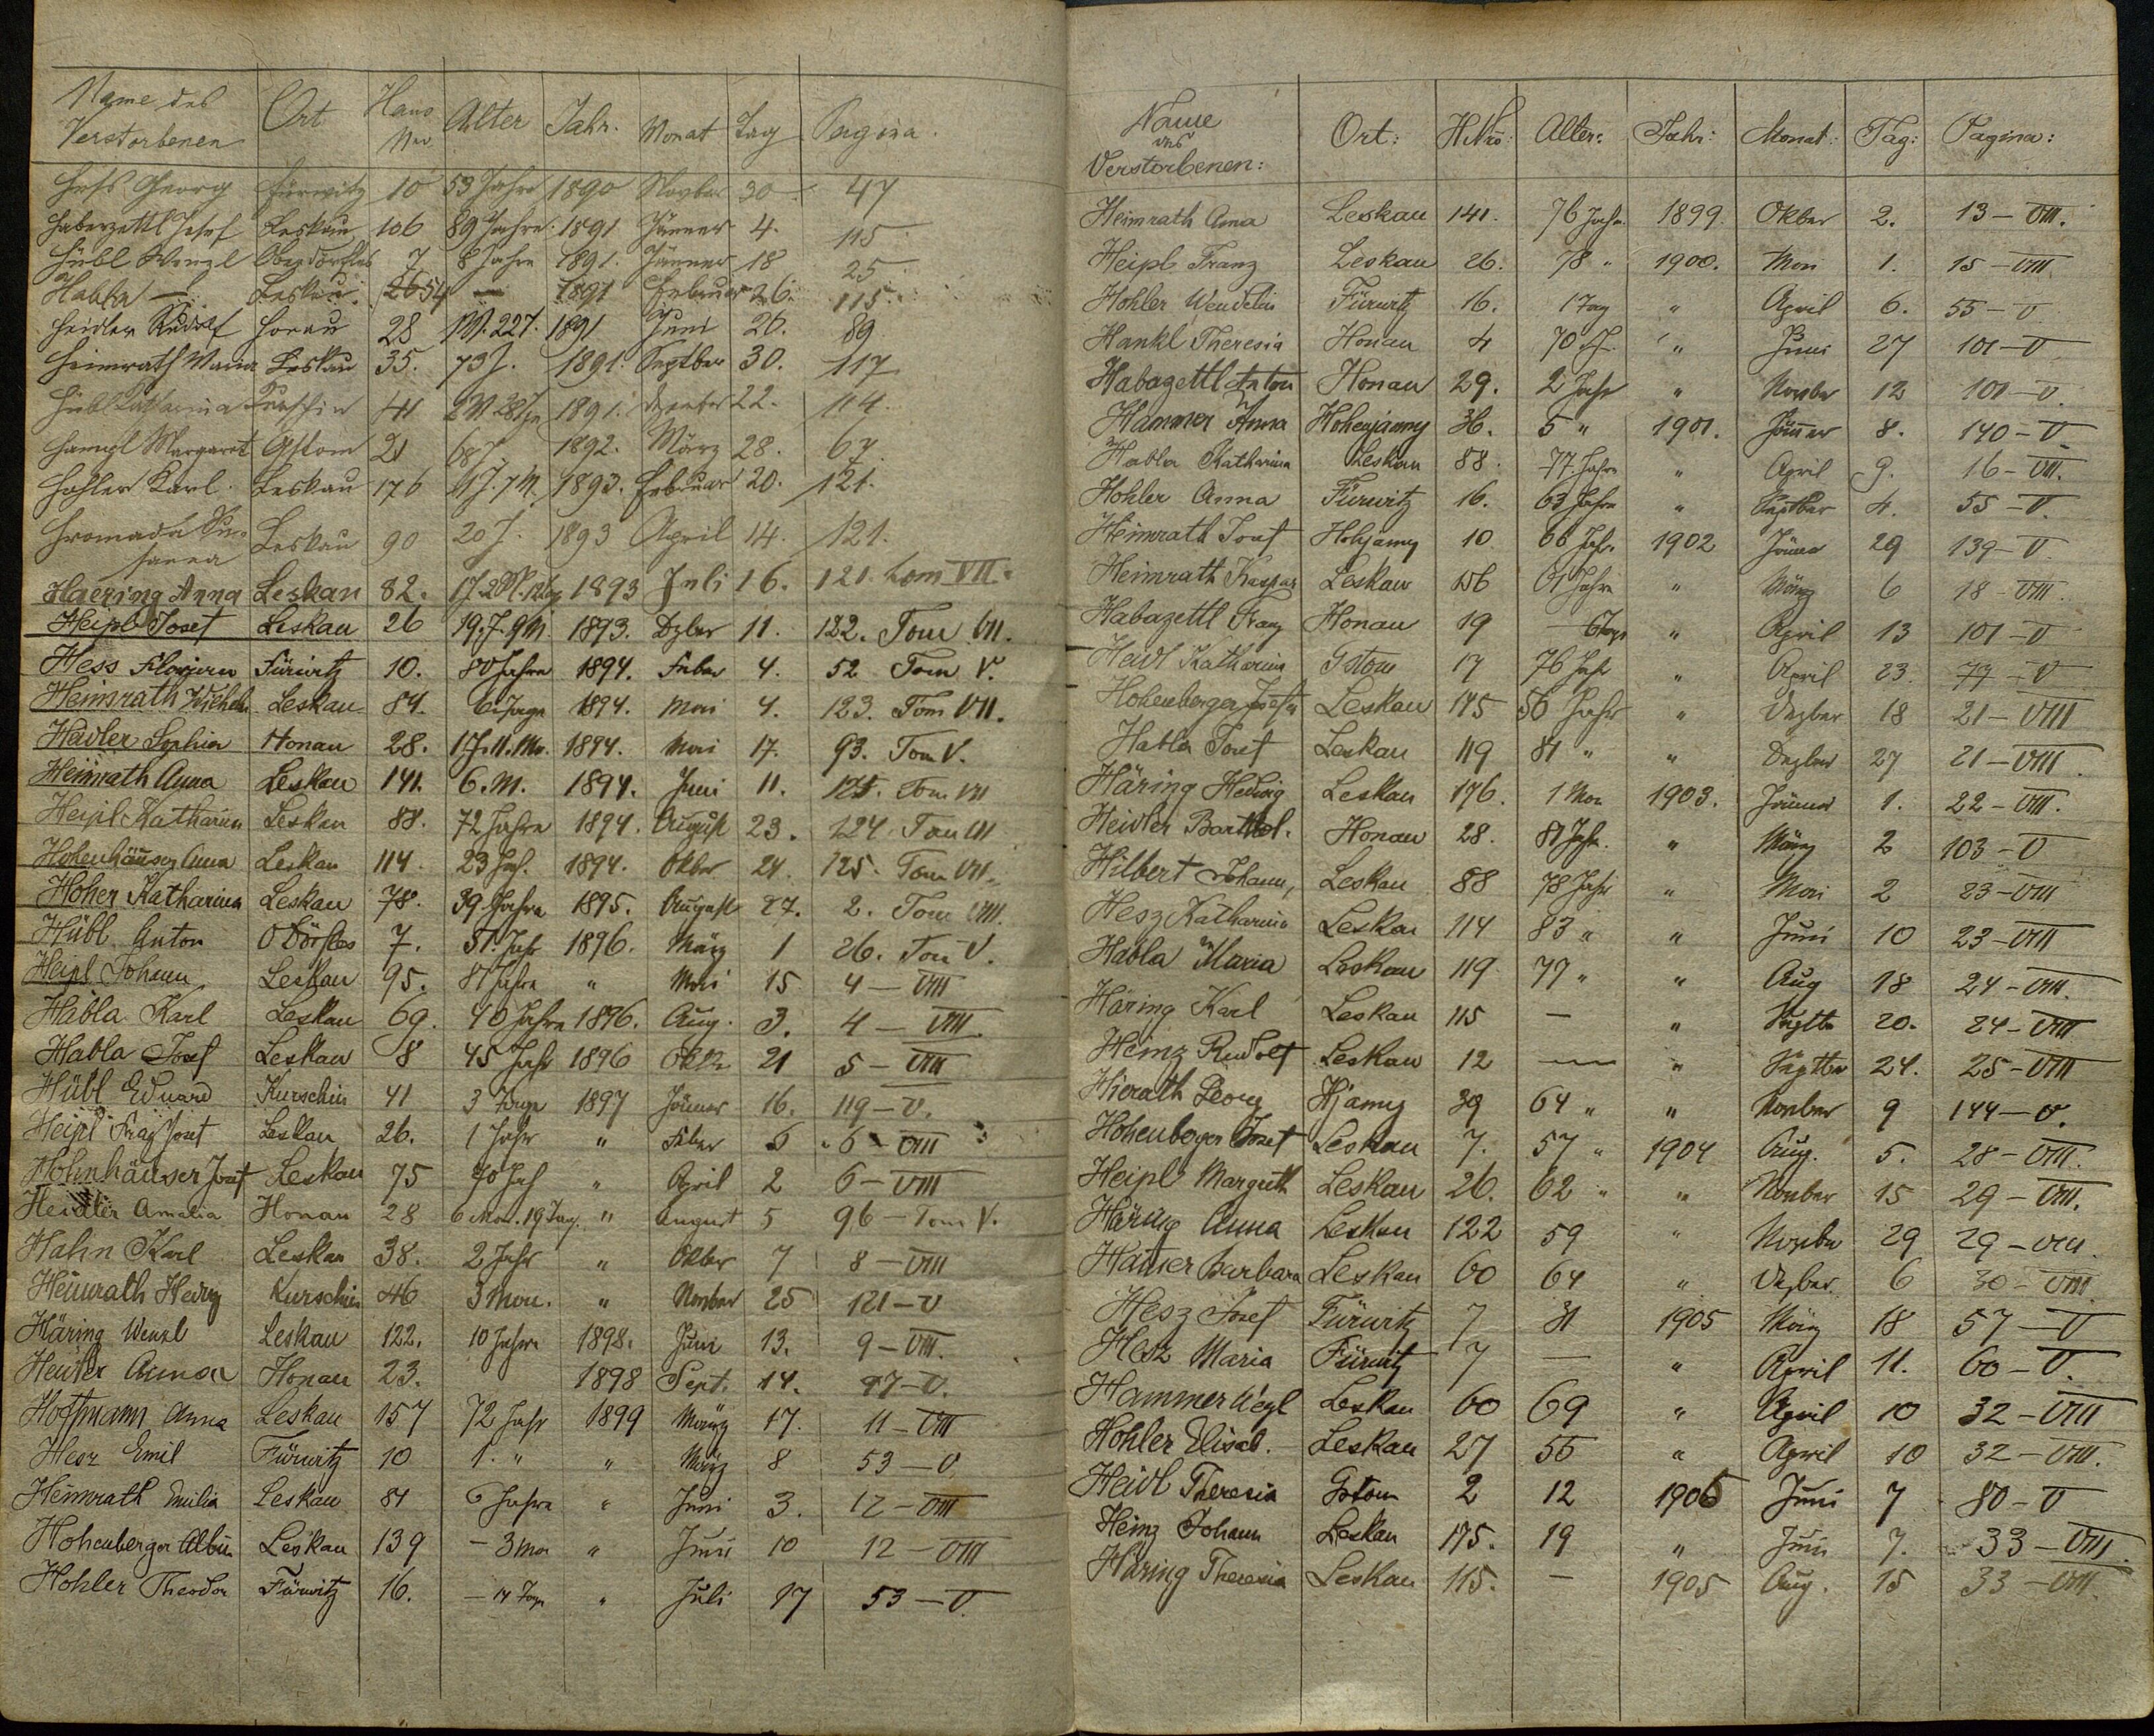 Name des Verstorbenen Ort Haus Nro. Alter Jahr. Monat Tag Pagina.
Hess Georg Fürwitz 10 53 Jahre 1890 Novber 30. 47
Haberzettl Josef Leskau 106 89 Jahre 1891 Jänner 4. 115
Hübl Wenzl Oberdörfles 7 8 Jahre 1891. Jänner 18 25
Habla — Leskau. 54 — 1891 Februar 26. 115.
Heidler Rudolf Honau 28 1891 Juni 26. 89
Heimrath Maria Leskau 35. 73 J. 1891. Septber 30. 117
Hübl Katharina Kurschin 41 1891. Dezember 22. 114.
Hampl Margaret Gstom 21 68 J. 1892. März 28. 67.
Hohler Karl. Leskau 176 11 J. 7 M. 1893. Februar 20. 121.
Hromada Su-
sanna Leskau 90 20 J. 1893 April 14. 121.
Haering Anna Leskau 82. 1893 Juli 16. 121. tom VII.
Heipl Josef Leskau 26 19. J. 9 M. 1893. Dzber 11. 122. Tom VII.
Hess Florian Fürwitz 10. 80 Jahre 1894. Feber 4. 52 Tom V.
Heimrath Wilhelm Leskau 84. 6 Tage 1894. Mai 4. 123. Tom VII.
Heidler Sophia Honau 28. 1 J. 11. Mo. 1894. Mai 17. 93. Tom V.
Heimrath Anna Leskau 141. 6. M. 1894. Juni 11. 125. Tom VII
Heipl Katharina Leskau 88. 72 Jahre 1894. August 23. 124. Tom VII
Hohenhäuser Anna Leskau 114. 23 Jah. 1894. Okber 24. 125. Tom VII.
Hoher Katharina Leskau 78. 39 Jahre 1895. August 27. 2. Tom VIII.
Hübl Anton O Dörfles 7. 51. Jahr 1896. März 1 26. Tom V.
Heipl Johann Leskau 95. 81 Jahre " Mai 15 4 — VIII
Habla Karl Leskau 69. 40 Jahre 1896. Aug. 3. 4 — VIII.
Habla Josef Leskau 8 45 Jahr 1896 Okber 21 5 — VIII
Hübl Eduard Kurschin 41 3 Tage 1897 Jänner 16. 119 — V.
Heipl Franz Josef Leskau 26. 1 Jahr " Feber 5 6 — VIII
Hohnhäuser Josef Leskau 75 70 Jah " April 2 6 — VIII
Heidler Amalia Honau 28 6 Mon. 19 Tag. " August 5 96 — Tom V.
Hahn Karl Leskau 38. 2 Jahr " Okber 7 8 — VIII
Heimrath Hedwig Kurschin 46 3 Mon. " Novber 25 121 — V
Häring Wenzl Leskau 122. 10 Jahre 1898. Juni 13. 9 — VIII.
Heidler Anna Honau 23. 1898 Sept. 14. 97 — V.
Hoffmann Anna Leskau 157 72 Jahr 1899 März 17. 11 — VIII
Hesz Emil Fürwitz 10 1. " " März 8 53 — V
Heimrath Emilia Leskau 84 6 Jahre " Juni 3. 12 — VIII
Hohenberger Albin Leskau 139 — 3 Mon " Juni 10 12 — VIII
Hohler Theodor Fürwitz 16. — 14 Tage " Juli 17 53 — V.
Name des Verstorbenen: Ort: H.Nro: Alter: Jahr: Monat: Tag: Pagina:
Heimrath Anna Leskau 141. 76 Jahr. 1899. Okber 2. 13 — VIII.
Heipl Franz Leskau 26. 78 " 1900. Mai 1. 15 — VIII
Hohler Wendelin Fürwitz 16. 1 Tag " April 6. 55 — V
Hankl Theresia Honau 4 70 J. " Juni 27 101 — V
Habazettl Anton Honau 29. 2 Jahr " Novber 12 101 — V.
Hammer Anna Hohenjamny 36. 5 " 1901. Jänner 8. 140 — V.
Habla Katharina Leskau 88. 77. Jahre " April 9. 16 — VIII.
Hohler Anna Fürwitz 16. 63 Jahre " Septber 4. 55 — V.
Heimrath Josef Hohjamny 10 66 Jahr. 1902 Jänner 29 139 — V.
Heimrath Kaspar Leskau 156 61 Jahre " März 6 18 — VIII.
Habazettl Franz Honau 19 — 6 Tage " April 13 101 — V
Heidl Katharina Gstom 17 76 Jahr " April 23. 77 — V
Hohenberger Josefa Leskau 175 56 Jahr " Dezber 18 21 — VIII
Habla Josef Leskau 119 81 " " Dezber 27 21 — VIII.
Häring Hedwig Leskau 176. 1 Mon 1903. Jänner 1. 22 — VIII.
Heidler Barthol. Honau 28. 81 Jahr. " März 2 103 — V
Hilbert Johann, Leskau 88 78 Jahr " Mai 2 23 — VIII
Hesz Katharina Leskau 114 83 " " Juni 10 23 — VIII
Habla Maria Leskau 119 77 " " Aug 18 24 — VIII.
Häring Karl Leskau 115 — " Septbr 20. 24 — VIII
Heinz Rudolf Leskau 12 — " Septber 24. 25 — VIII
Hierath Georg Hjamny 39 64 " " Novber 9 144 — V.
Hohenberger Josef Leskau 7. 57 " 1904 Aug. 5. 28 — VIII.
Heipl Margreth Leskau 26. 62 " " Novber 15 29 — VIII.
Häring Anna Leskau 122 59 " Novber 29 29 — VIII.
Hammer Barbara Leskau 60 64 " Dezber 6 30 — VIII.
Hesz Josef Fürwitz 7 31 1905 März 18 57 — V
Hesz Maria Fürwitz 7 — " April 11. 60 — V.
Hammer Wenzl Leskau 60 69 " April 10 32 — VIII
Hohler Elisab. Leskau 27 55 " April 10 32 — VIII.
Heidl Theresia Gstom 2 12 1905 Juni 7 80 — V
Heinz Johann Leskau 175. 19 " Juni 7. 33 — VIII.
Häring Theresia Leskau 115. — 1905 Aug. 15 33 — VIII.